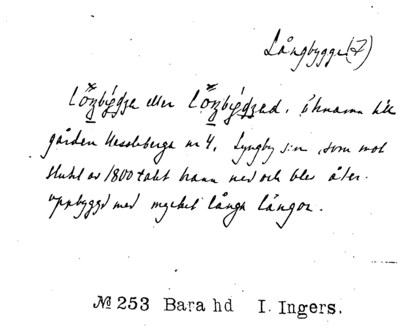 Långbygge(7)
eller öknamn till
gården Hessleberga nr 4, Lyngby s:n, som mot
slutet av 1800talet brann ned och blev åter-
uppbyggd med mycket långa längor.
№ 253 Bara hd I. Ingers.